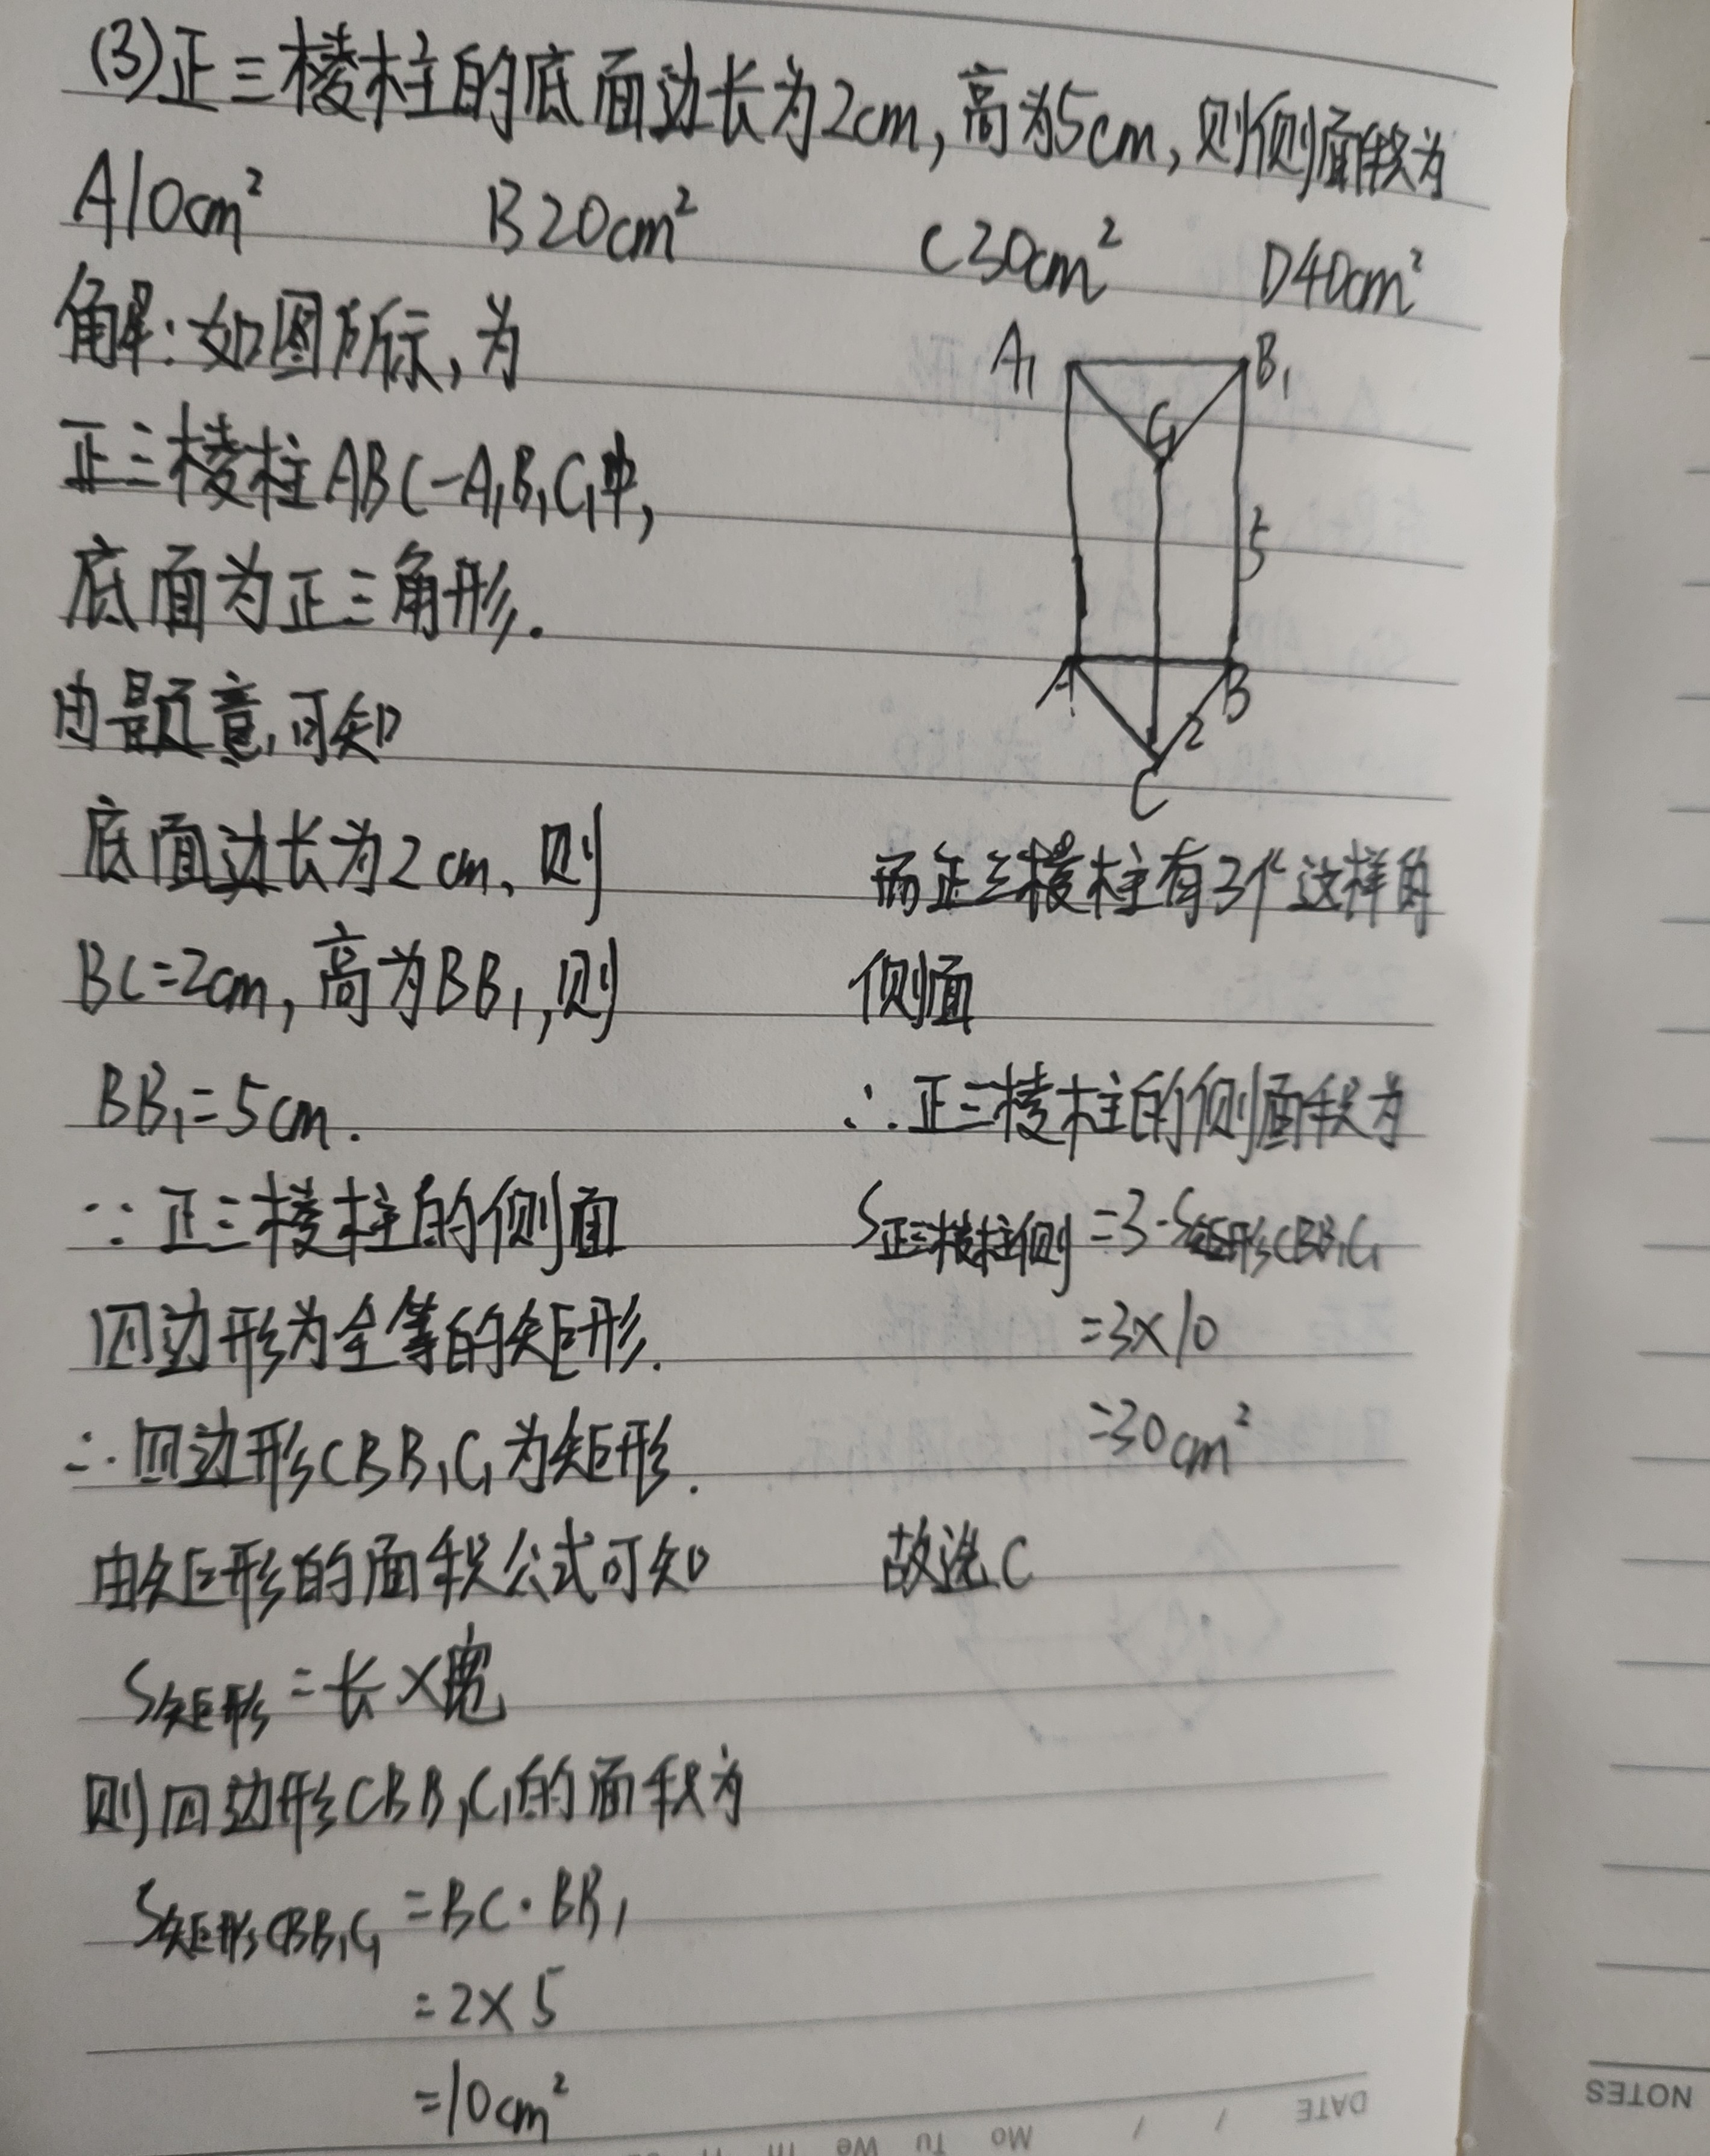 (3)正三棱柱的底面边长为2cm,高为5cm,则侧面积为
A10cm² B20cm² C30cm² D40cm²
解:如图所示,为
正三棱柱ABC-A₁B₁C₁中,
底面为正三角形.
由题意,可知
底面边长为2cm,则
BC=2cm,高为BB₁,则
BB₁=5cm.
∵正三棱柱的侧面
四边形为全等的矩形.
∴四边形CBB₁C₁为矩形.
由矩形的面积公式可知
S矩形=长×宽
则四边形CBB₁C₁的面积为
S矩形CBB₁C₁=BC·BB₁
=2×5
=10cm²
A₁
B₁
C₁
5
A
B
2
C
而正三棱柱有3个这样的
侧面
∴正三棱柱的侧面积为
S正三棱柱侧=3·S矩形CBB₁C₁
=3×10
=30cm²
故选C
DATE / /
Mo Tu We
NOTES